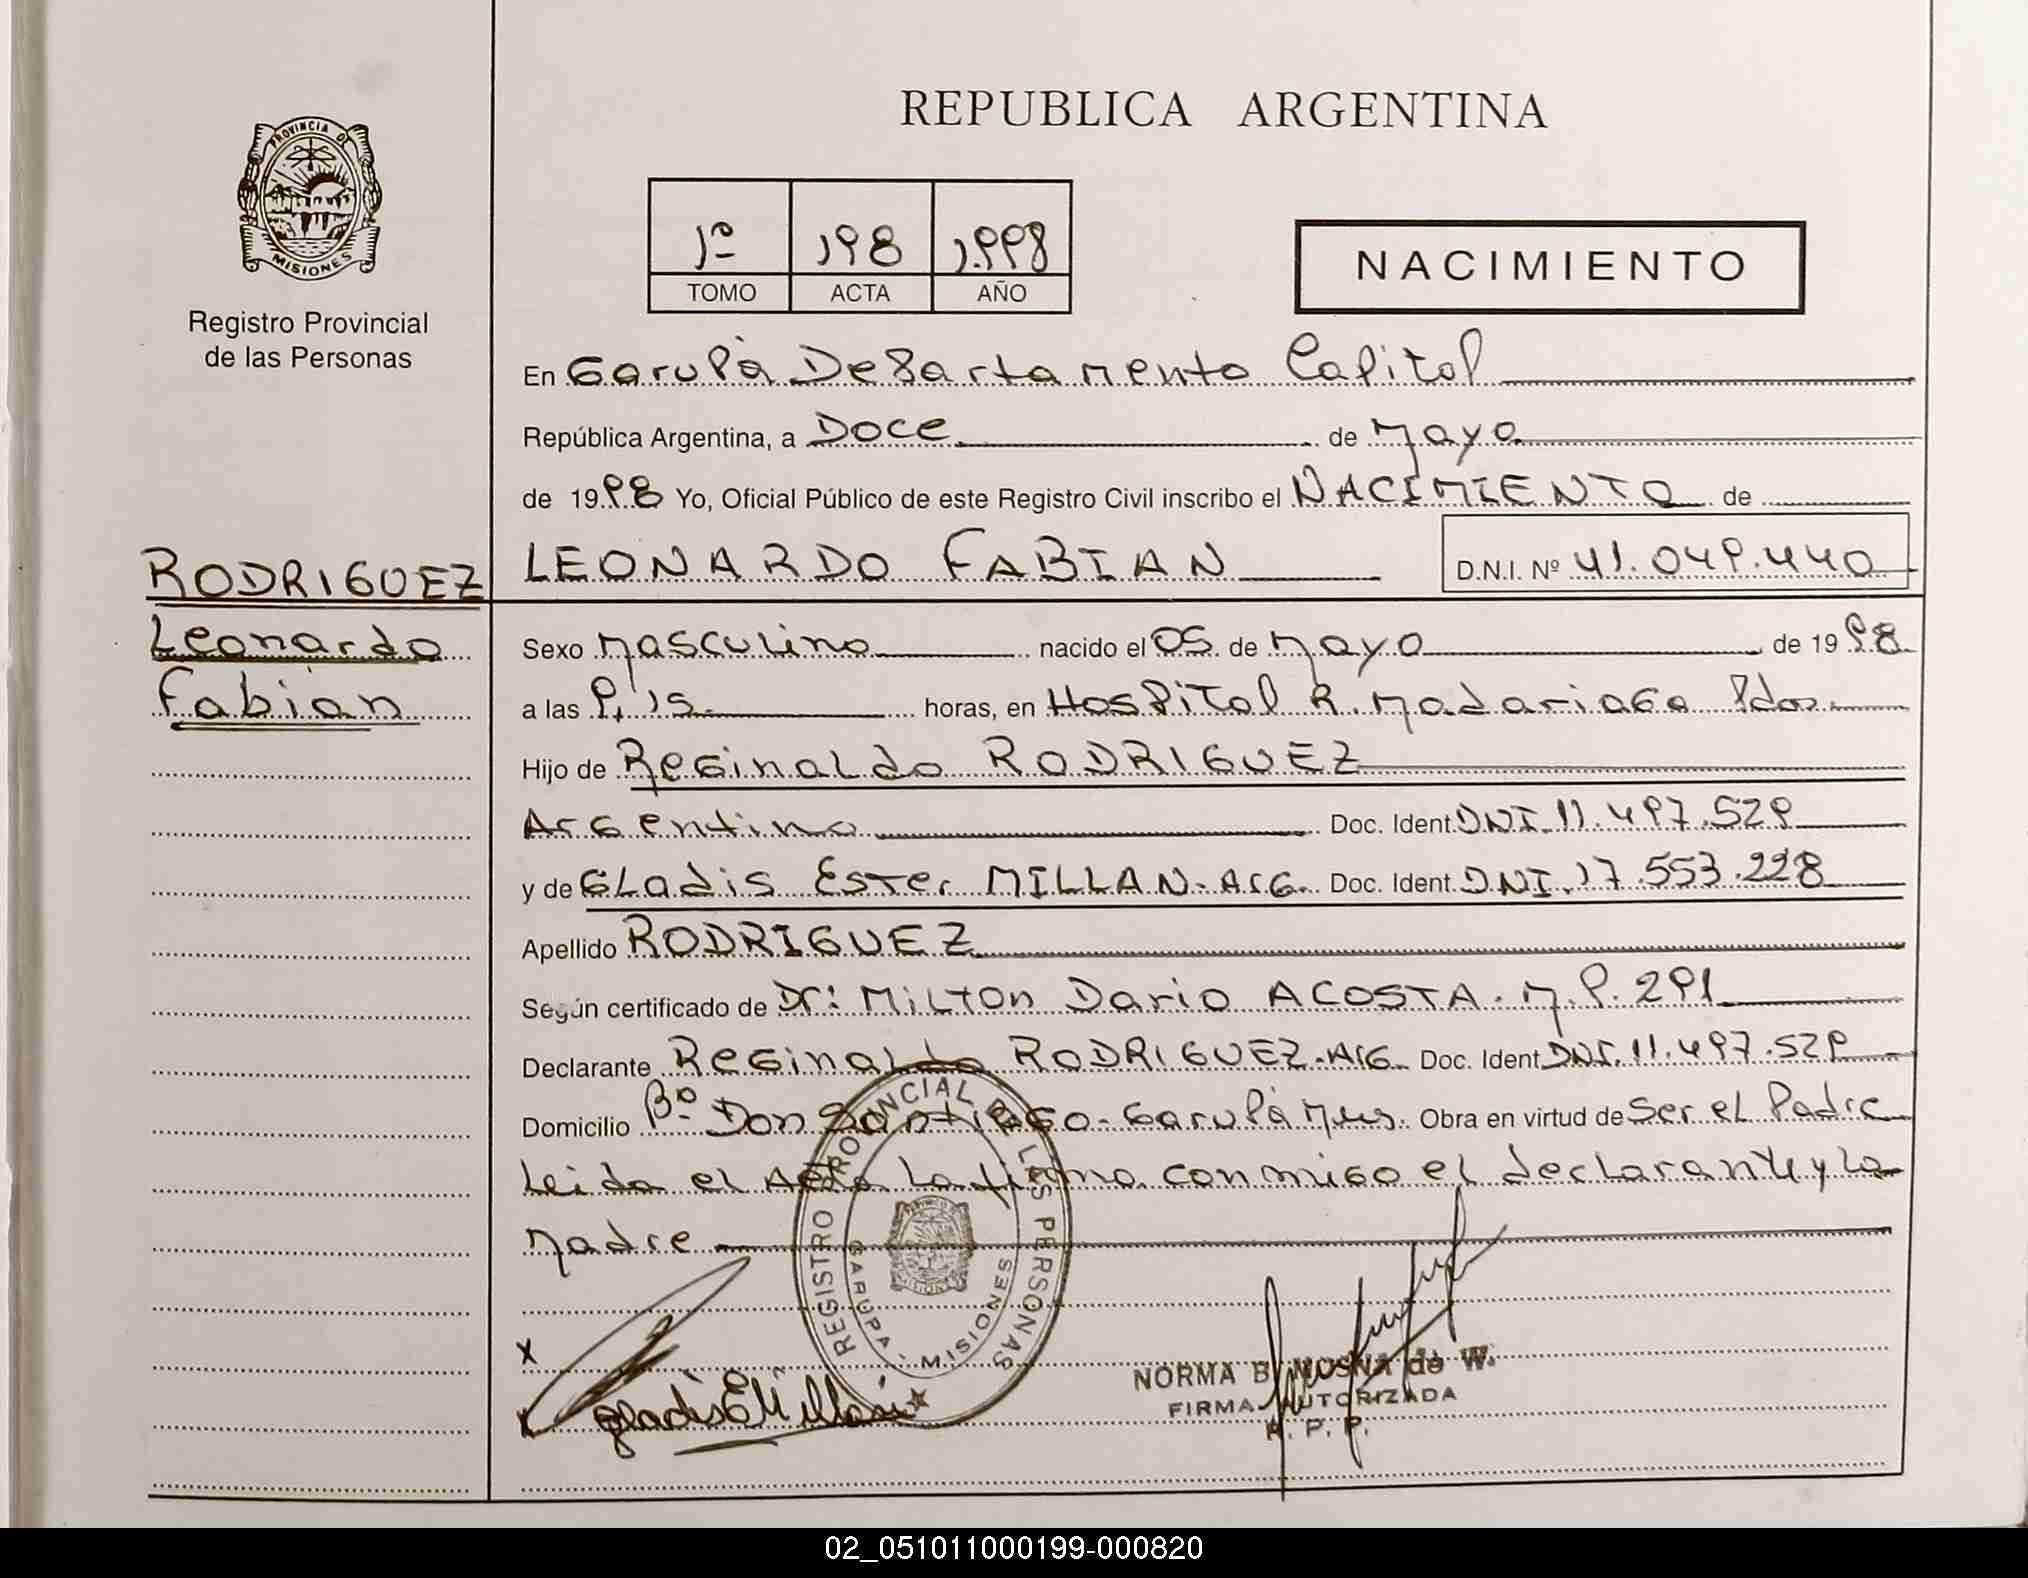 REPUBLICA ARGENTINA
PROVINCIA DE
MISIONES
Registro Provincial
de las Personas
1º 198 1.998
TOMO ACTA AÑO
NACIMIENTO
En Garupá Departamento Capital
República Argentina, a Doce de Mayo
de 1998 Yo, Oficial Público de este Registro Civil inscribo el NACIMIENTO de
LEONARDO FABIAN D.N.I. Nº 41.049.440
RODRIGUEZ
Leonardo
Fabian
Sexo Masculino nacido el 05 de Mayo de 1998
a las 9,15 horas, en Hospital R. Madariaga Pdas.
Hijo de Reginaldo RODRIGUEZ
Argentino Doc. Ident. DNI 11.497.529
y de Gladis Ester MILLAN - Arg. Doc. Ident. DNI. 17.553.228
Apellido RODRIGUEZ
Según certificado de Dr: Milton Dario ACOSTA. M.P. 291
Declarante Reginaldo RODRIGUEZ - Arg. Doc. Ident. DNI. 11.497.529
Domicilio Bº Don Santiago - Garupá Mnes. Obra en virtud de Ser el Padre
Leida el Acta La firma conmigo el declarante y La
Madre
REGISTRO PROVINCIAL DE LAS PERSONAS
GARUPA - MISIONES
X
Gladis E Millan
NORMA B. MUSNA de W.
FIRMA AUTORIZADA
R. P. P.
02_051011000199-000820